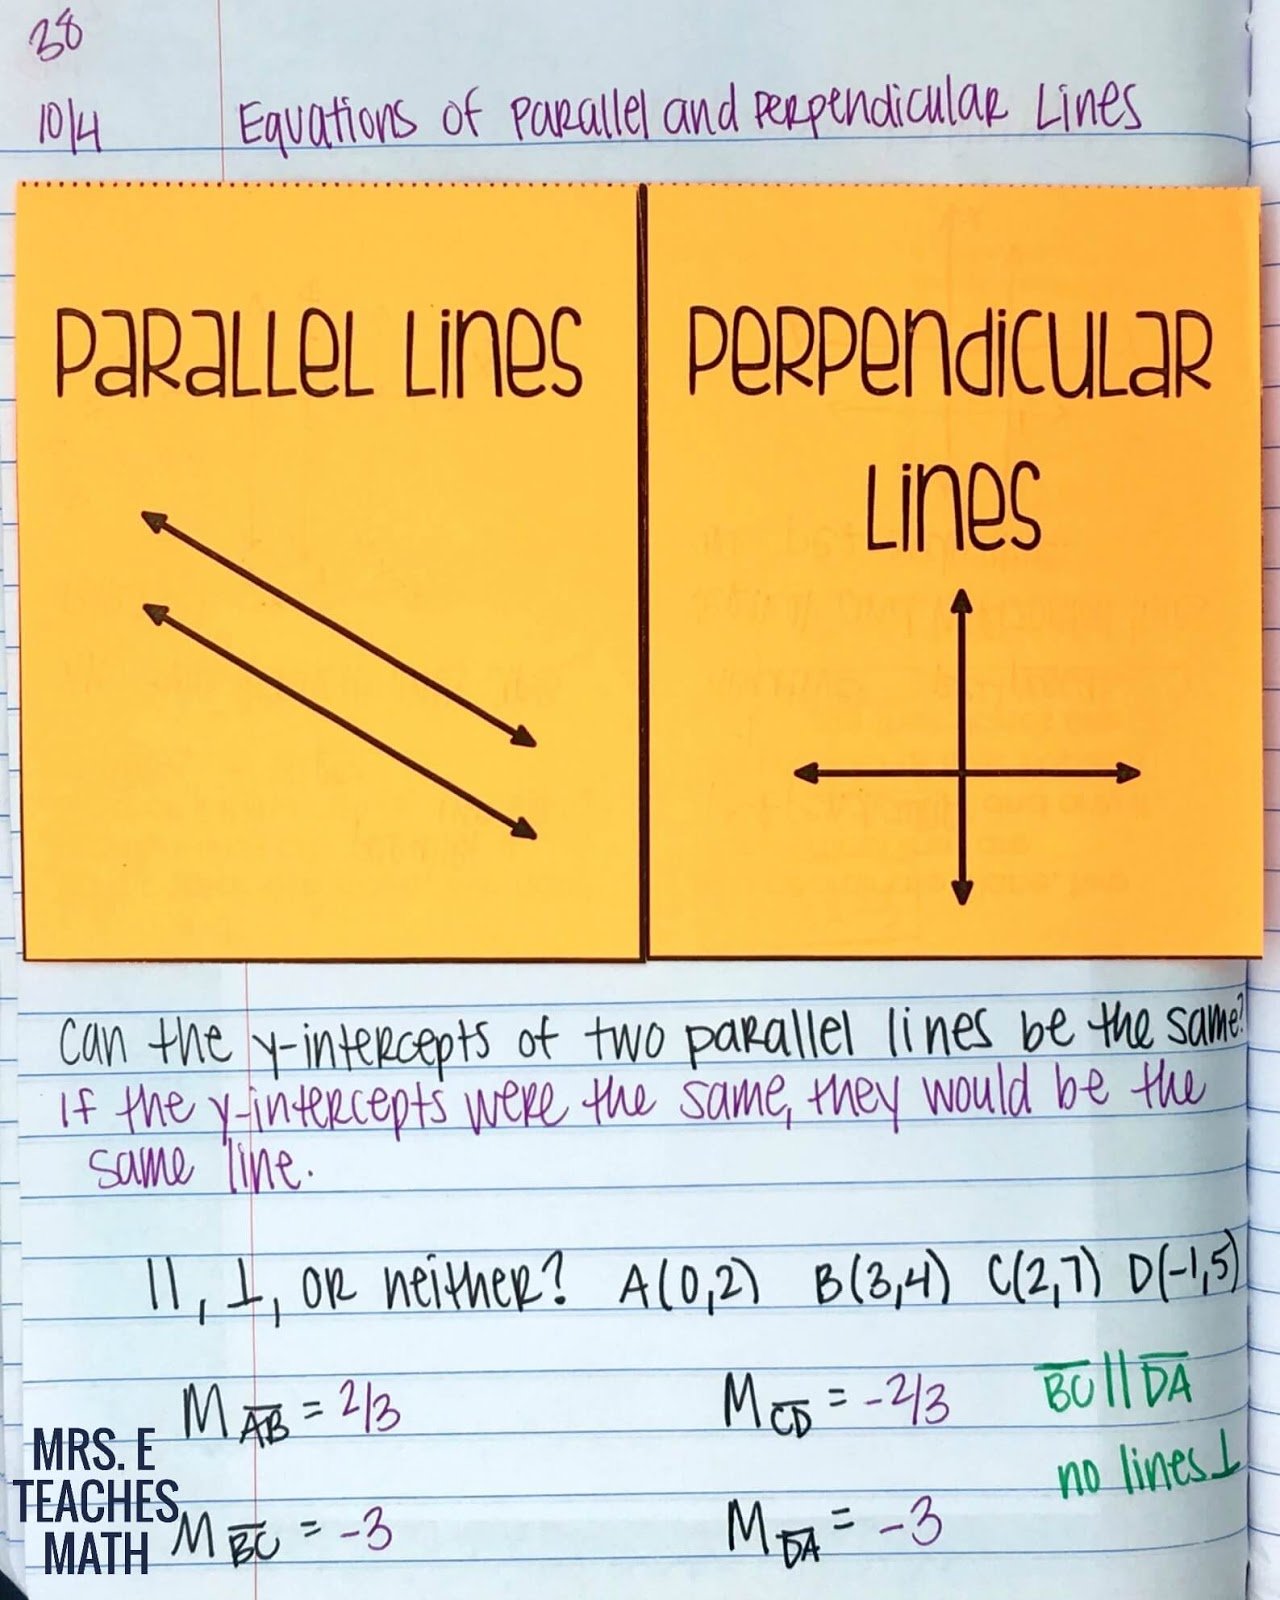 38
10/4 Equations of Parallel and Perpendicular Lines
Parallel Lines
Perpendicular
Lines
Can the y-intercepts of two parallel lines be the same?
If the y-intercepts were the same, they would be the
same line.
||, ⊥, or neither? A(0,2) B(3,4) C(2,7) D(-1,5)
M A̅B̅ = 2/3 M C̅D̅ = -2/3 B̅C̅ || D̅A̅
no lines ⊥
M B̅C̅ = -3 M D̅A̅ = -3
MRS. E
TEACHES
MATH